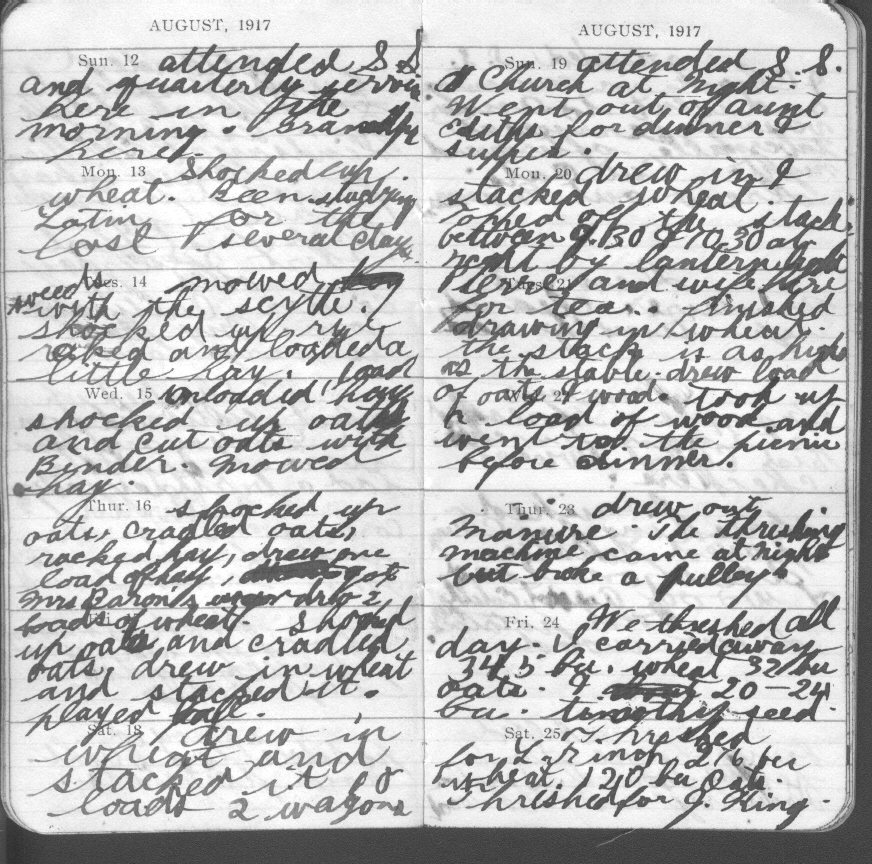 AUGUST, 1917
Sun. 12 attended S S
and quarterly service
here in the
morning. Grandpa
here.
Mon. 13 Shocked up
wheat. Been studying
Latin for the
last several days
Tues. 14 mowed
weeds
with the scythe.
shocked up rye
raked and loaded a
little hay. load
Wed. 15 unloaded hay
shocked up oats
and cut oats with
Binder. mowed
hay.
Thur. 16 shocked up
oats, cradled oats,
racked hay, drew one
load of hay, got
Mrs Baron's drew 2
loads of wheat. Shocked
up oats and cradled
oats, drew in wheat
and stacked it.
played ball.
Sat. 18 drew in
wheat and
stacked it 10
loads 2 wagons
AUGUST, 1917
Sun. 19 attended S. S.
& Church at night.
Went out of aunt
Ediths for dinner &
supper.
Mon. 20 drew in &
stacked wheat.
Toped off the stack
between 9.30 & 10.30 at
night by lantern light
Tues. 21 and wife here
for tea. finished
drawing in wheat.
the stack is as high
as the stable. drew load
of oats & wood. Took up
a load of wood and
went to the picnic
before dinner.
Thur. 23 drew out
manure. The threshing
machine came at night
but broke a pulley.
Fri. 24 We threshed all
day. I carried away
345 bu. wheat 32 bu
oats. & 20-24
bu. timothy seed.
Sat. 25 Threshed
for 216 bu
wheat, 120 bu Oats.
Threshed for J. King.